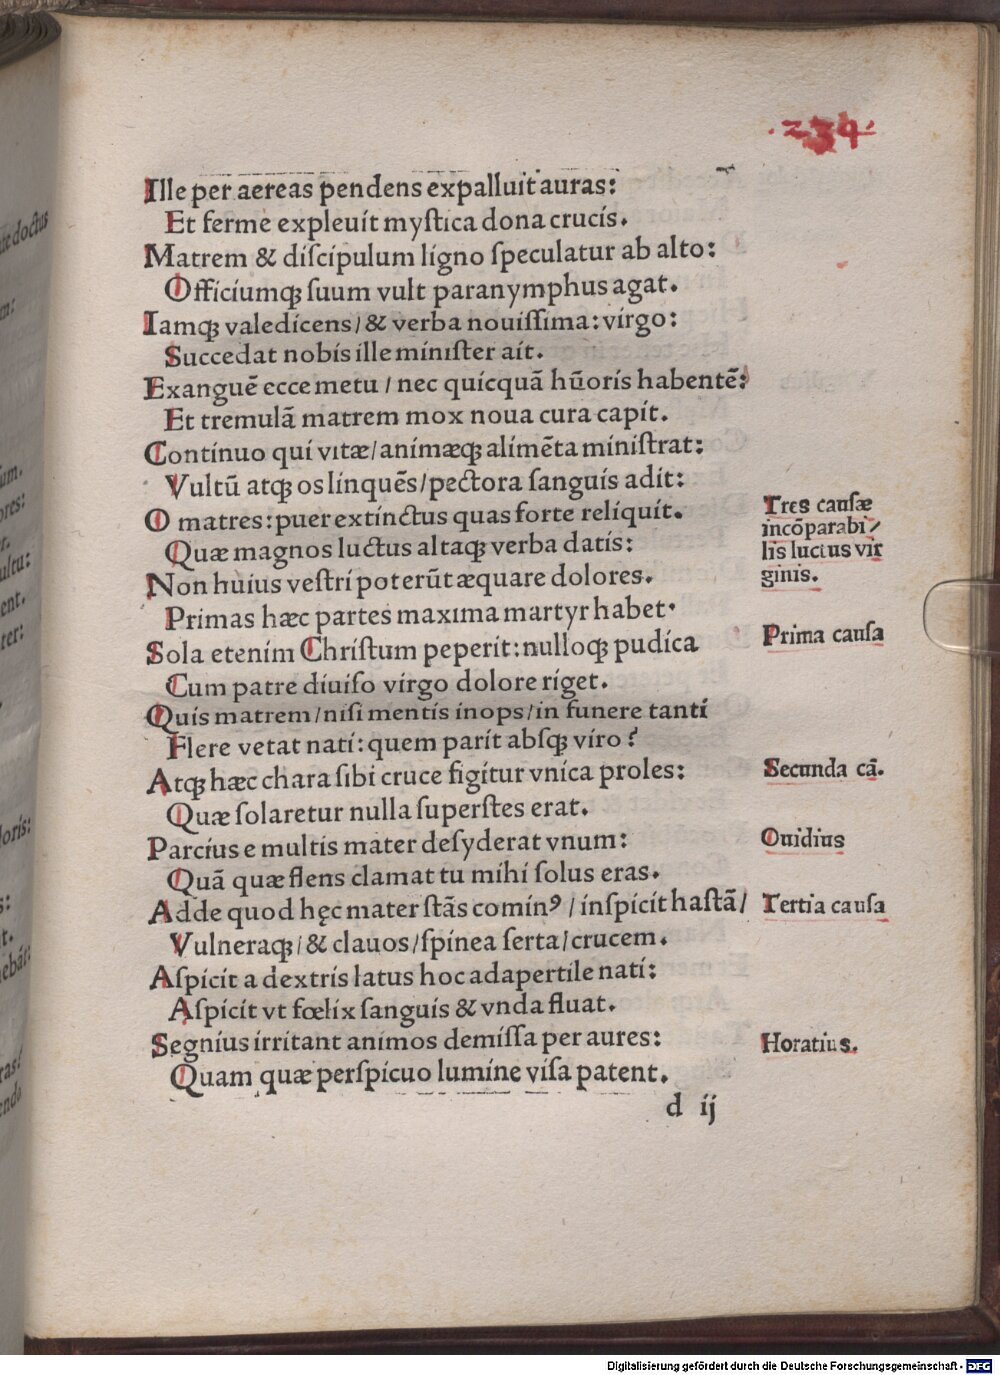 .234.
Ille per aereas pendens expalluit auras:
Et ferme expleuit myſtica dona crucis.
Matrem & diſcipulum ligno ſpeculatur ab alto:
Officiumqꝫ ſuum vult paranymphus agat.
Iamqꝫ valedicens/ & verba nouiſſima: virgo:
Succedat nobis ille miniſter ait.
Exanguē ecce metu / nec quicquā hūoris habentē:
Et tremulā matrem mox noua cura capit.
Continuo qui vitæ/ animæqꝫ alimēta miniſtrat:
Vultū atqꝫ os linquēs/ pectora ſanguis adit:
O matres: puer extinctus quas forte reliquit.
Quæ magnos luctus altaqꝫ verba datis:
Non huius veſtri poterūt æquare dolores.
Primas hæc partes maxima martyr habet.
Sola etenim Chriſtum peperit: nulloqꝫ pudica
Cum patre diuiſo virgo dolore riget.
Quis matrem/ niſi mentis inops/ in funere tanti
Flere vetat nati: quem parit abſqꝫ viro?
Atqꝫ hæc chara ſibi cruce figitur vnica proles:
Quæ ſolaretur nulla ſuperſtes erat.
Parcius e multis mater deſyderat vnum:
Quā quæ flens clamat tu mihi ſolus eras.
Adde quod hęc mater ſtās cominꝰ / inſpicit haſtā/
Vulneraqꝫ/ & clauos/ ſpinea ſerta/ crucem.
Aſpicit a dextris latus hoc adapertile nati:
Aſpicit vt fœlix ſanguis & vnda fluat.
Segnius irritant animos demiſſa per aures:
Quam quæ perſpicuo lumine viſa patent.
d ij
Tres cauſæ
incōparabi/
lis luctus vir
ginis.
Prima cauſa
Secunda cā.
Ouidius
Tertia cauſa
Horatius.
doctus
Digitalisierung gefördert durch die Deutsche Forschungsgemeinschaft - DFG